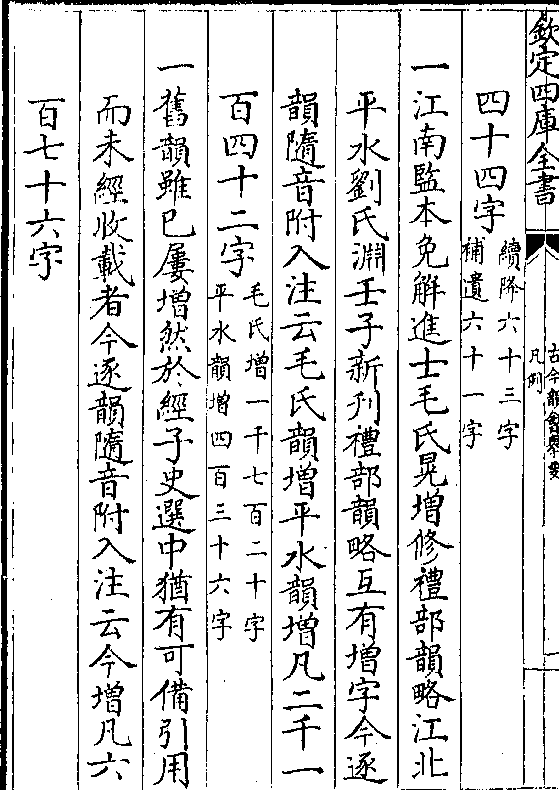 欽定四庫全書
古今韻會舉要
凡例
四十四字
續降六十三字
補遺六十一字
一江南監本免解進士毛氏晃增修禮部韻略江北
平水劉氏淵壬子新刋禮部韻略互有增字今逐
韻隨音附入注云毛氏韻增平水韻增凡二千一
百四十二字
毛氏增一千七百二十字
平水韻增四百三十六字
一舊韻雖已屢增然於經子史選中猶有可備引用
而未經收載者今逐韻隨音附入注云今增凡六
百七十六字